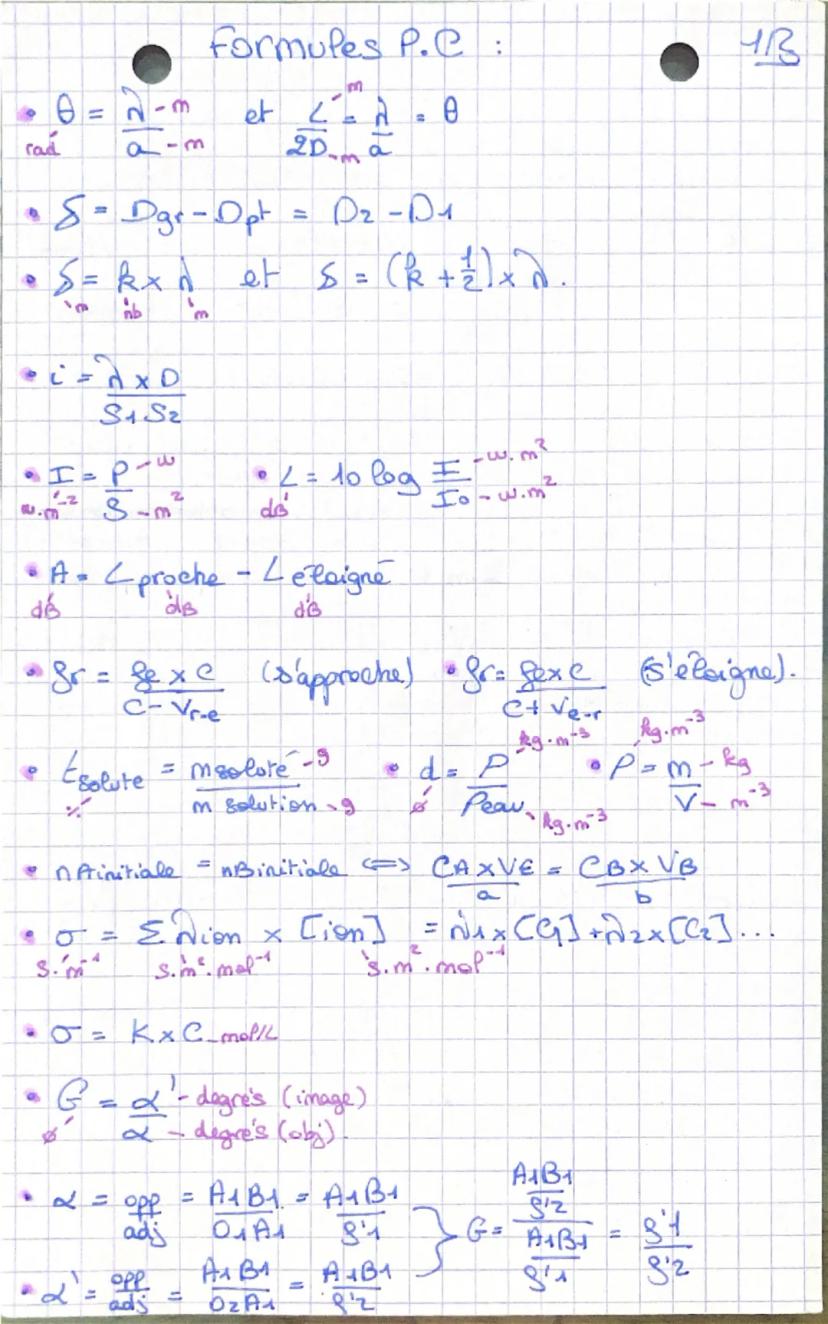 Formules P.C : 1/3
• θ = λ/a et L/2D = λ/a = θ
rad - m - m - m - m
• δ = Dgr - Dpt = D2 - D1
• δ = k x λ et δ = (k + 1/2) x λ.
m nb m
• i = λ x D / S1S2
• I = P/S • L = 10 log I/I0
w.m⁻² - w - m² dB - w.m² - w.m²
• A = L proche - L éloigné
dB dB dB
• fr = fe x c / c - Vr-e (s'approche) • fr = fe x c / c + Ve-r (s'éloigne).
• t soluté = m soluté / m solution • d = ρ / ρeau • ρ = m / V
% - g - g ø kg.m⁻³ kg.m⁻³ kg.m⁻³ - kg - m⁻³
• nA initiale = nB initiale <=> CA x VE / a = CB x VB / b
• σ = Σ λion x [ion] = λ1 x [C1] + λ2 x [C2] ...
S.m⁻¹ S.m².mol⁻¹ S.m².mol⁻¹
• σ = K x C - mol/L
• G = α' / α
ø - degrés (image) - degrés (obj).
• α = opp/adj = A1B1/O1A1 = A1B1/f'1 } G = (A1B1/f'2) / (A1B1/f'1) = f'1/f'2
• α' = opp/adj = A1B1/O2A1 = A1B1/f'2